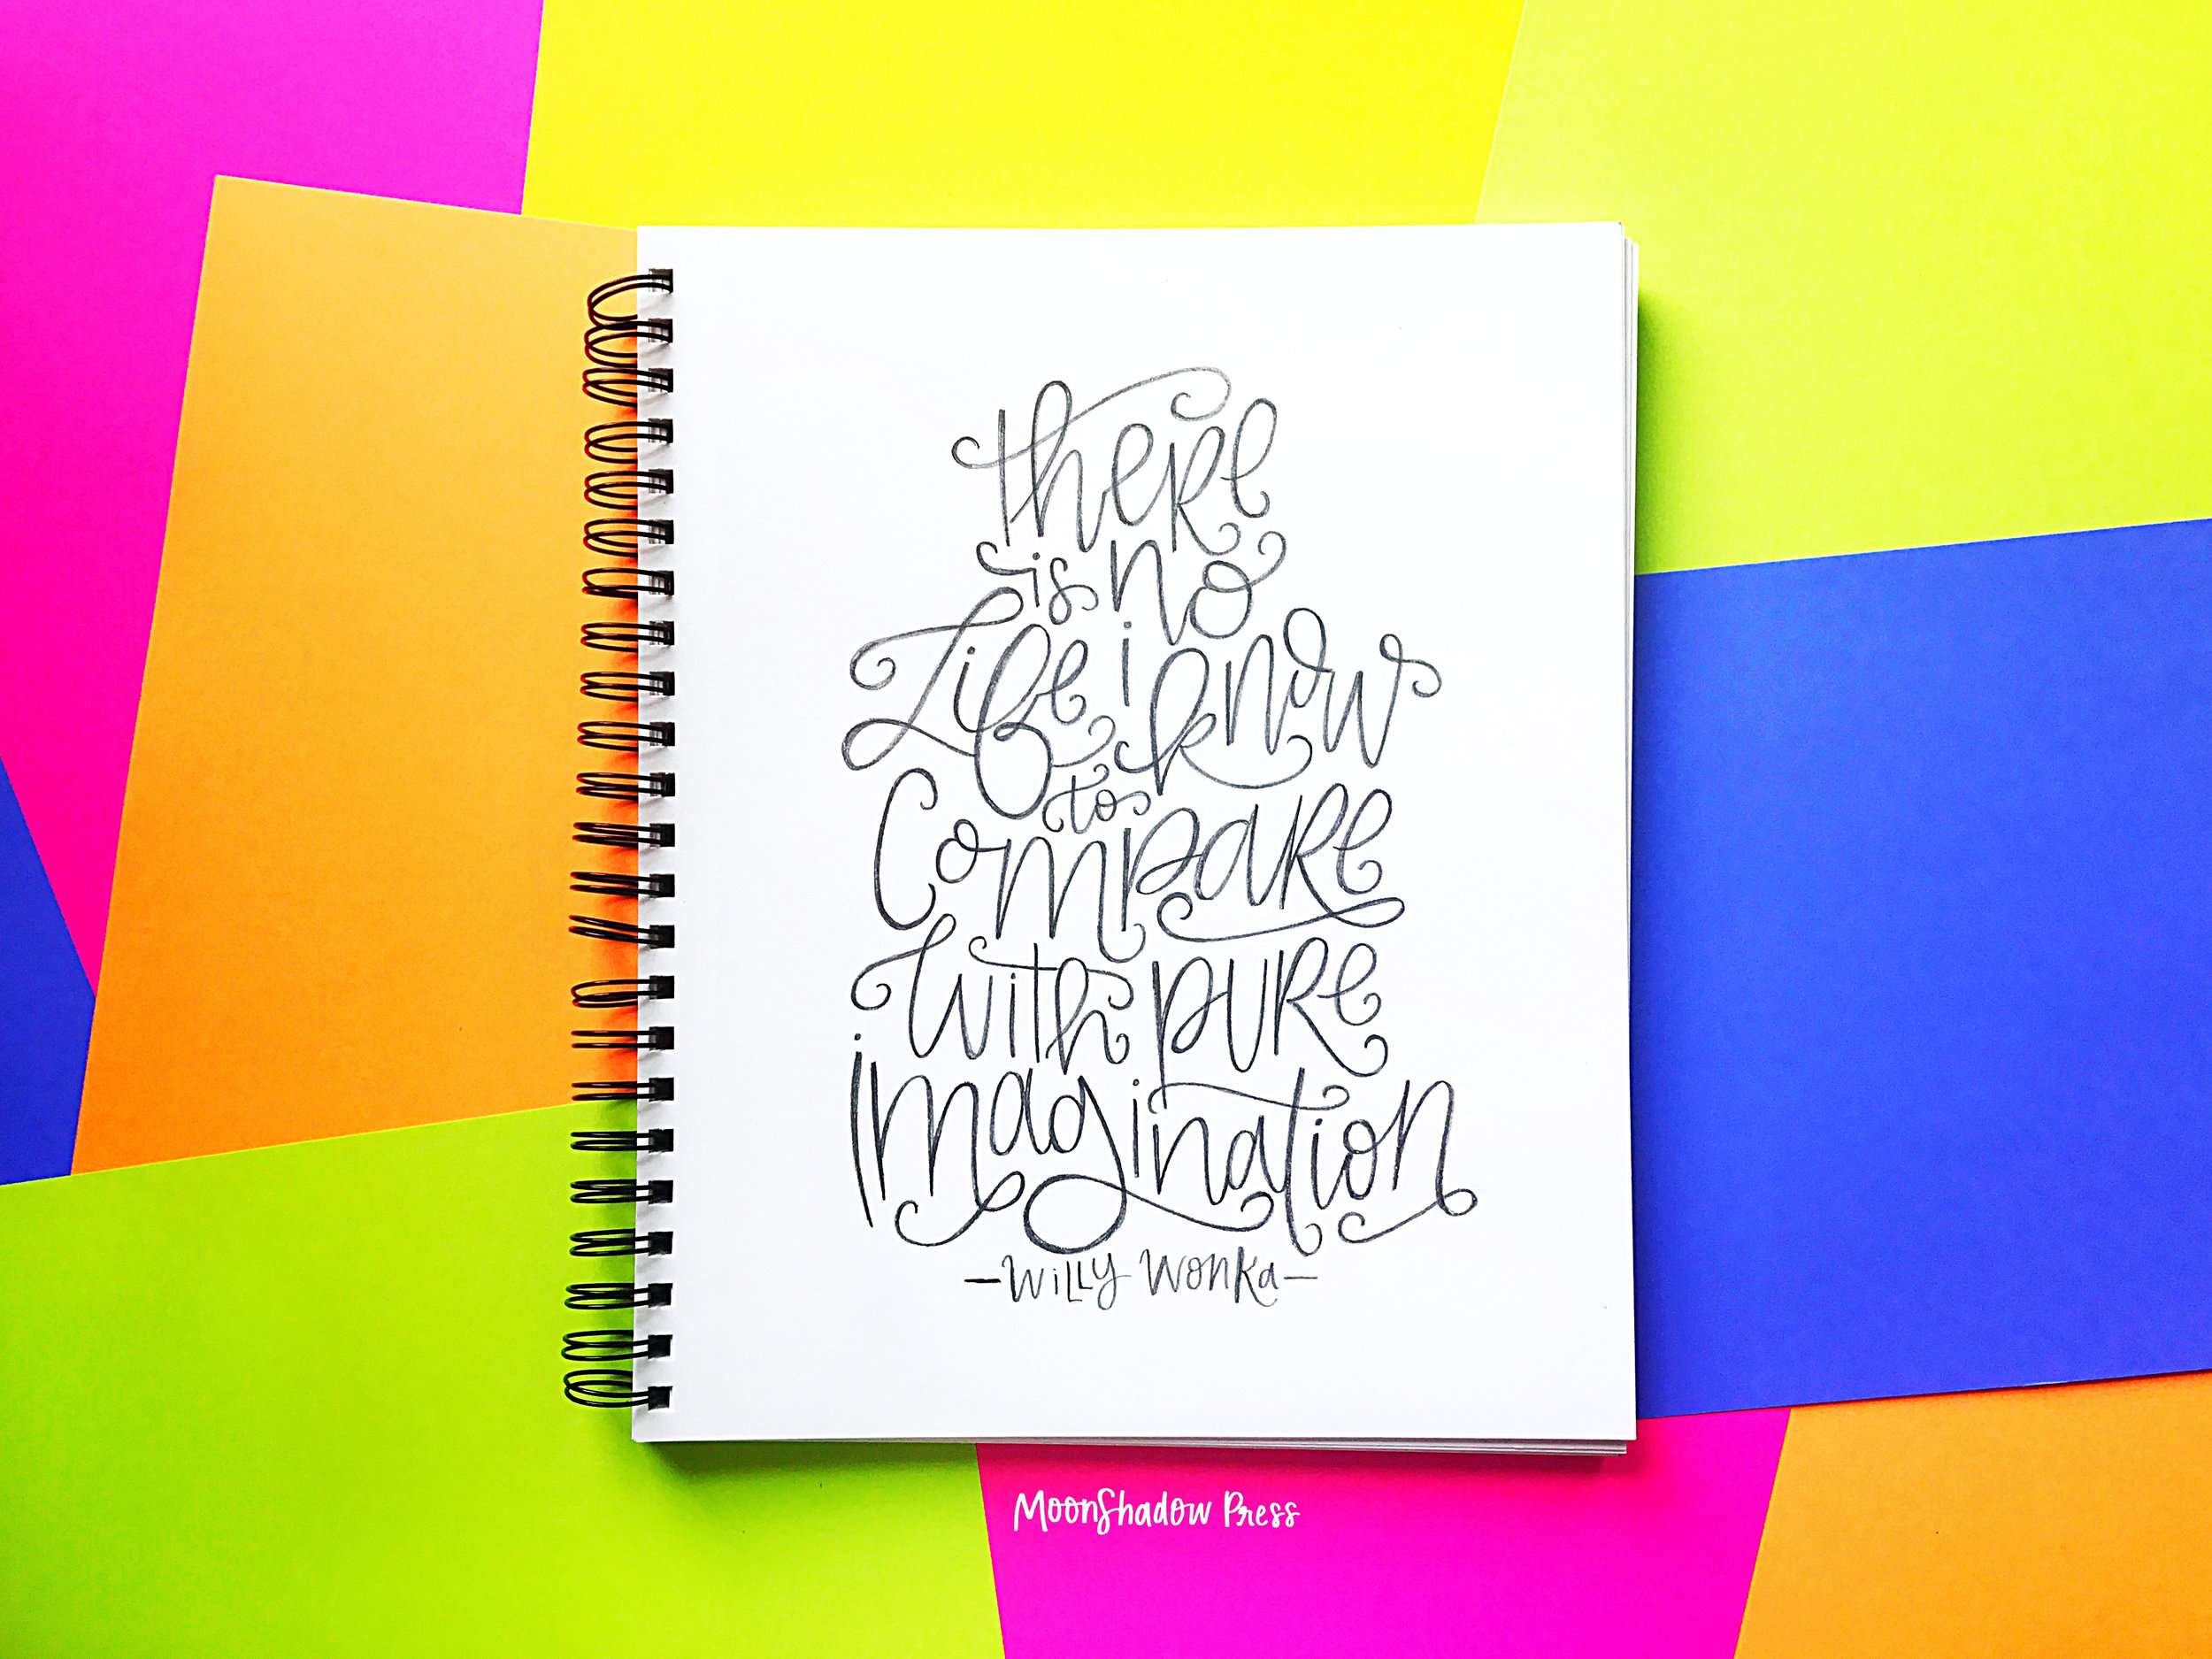 there
is no
Life i know
to
Compare
with pure
imagination
- Willy Wonka -
MoonShadow Press